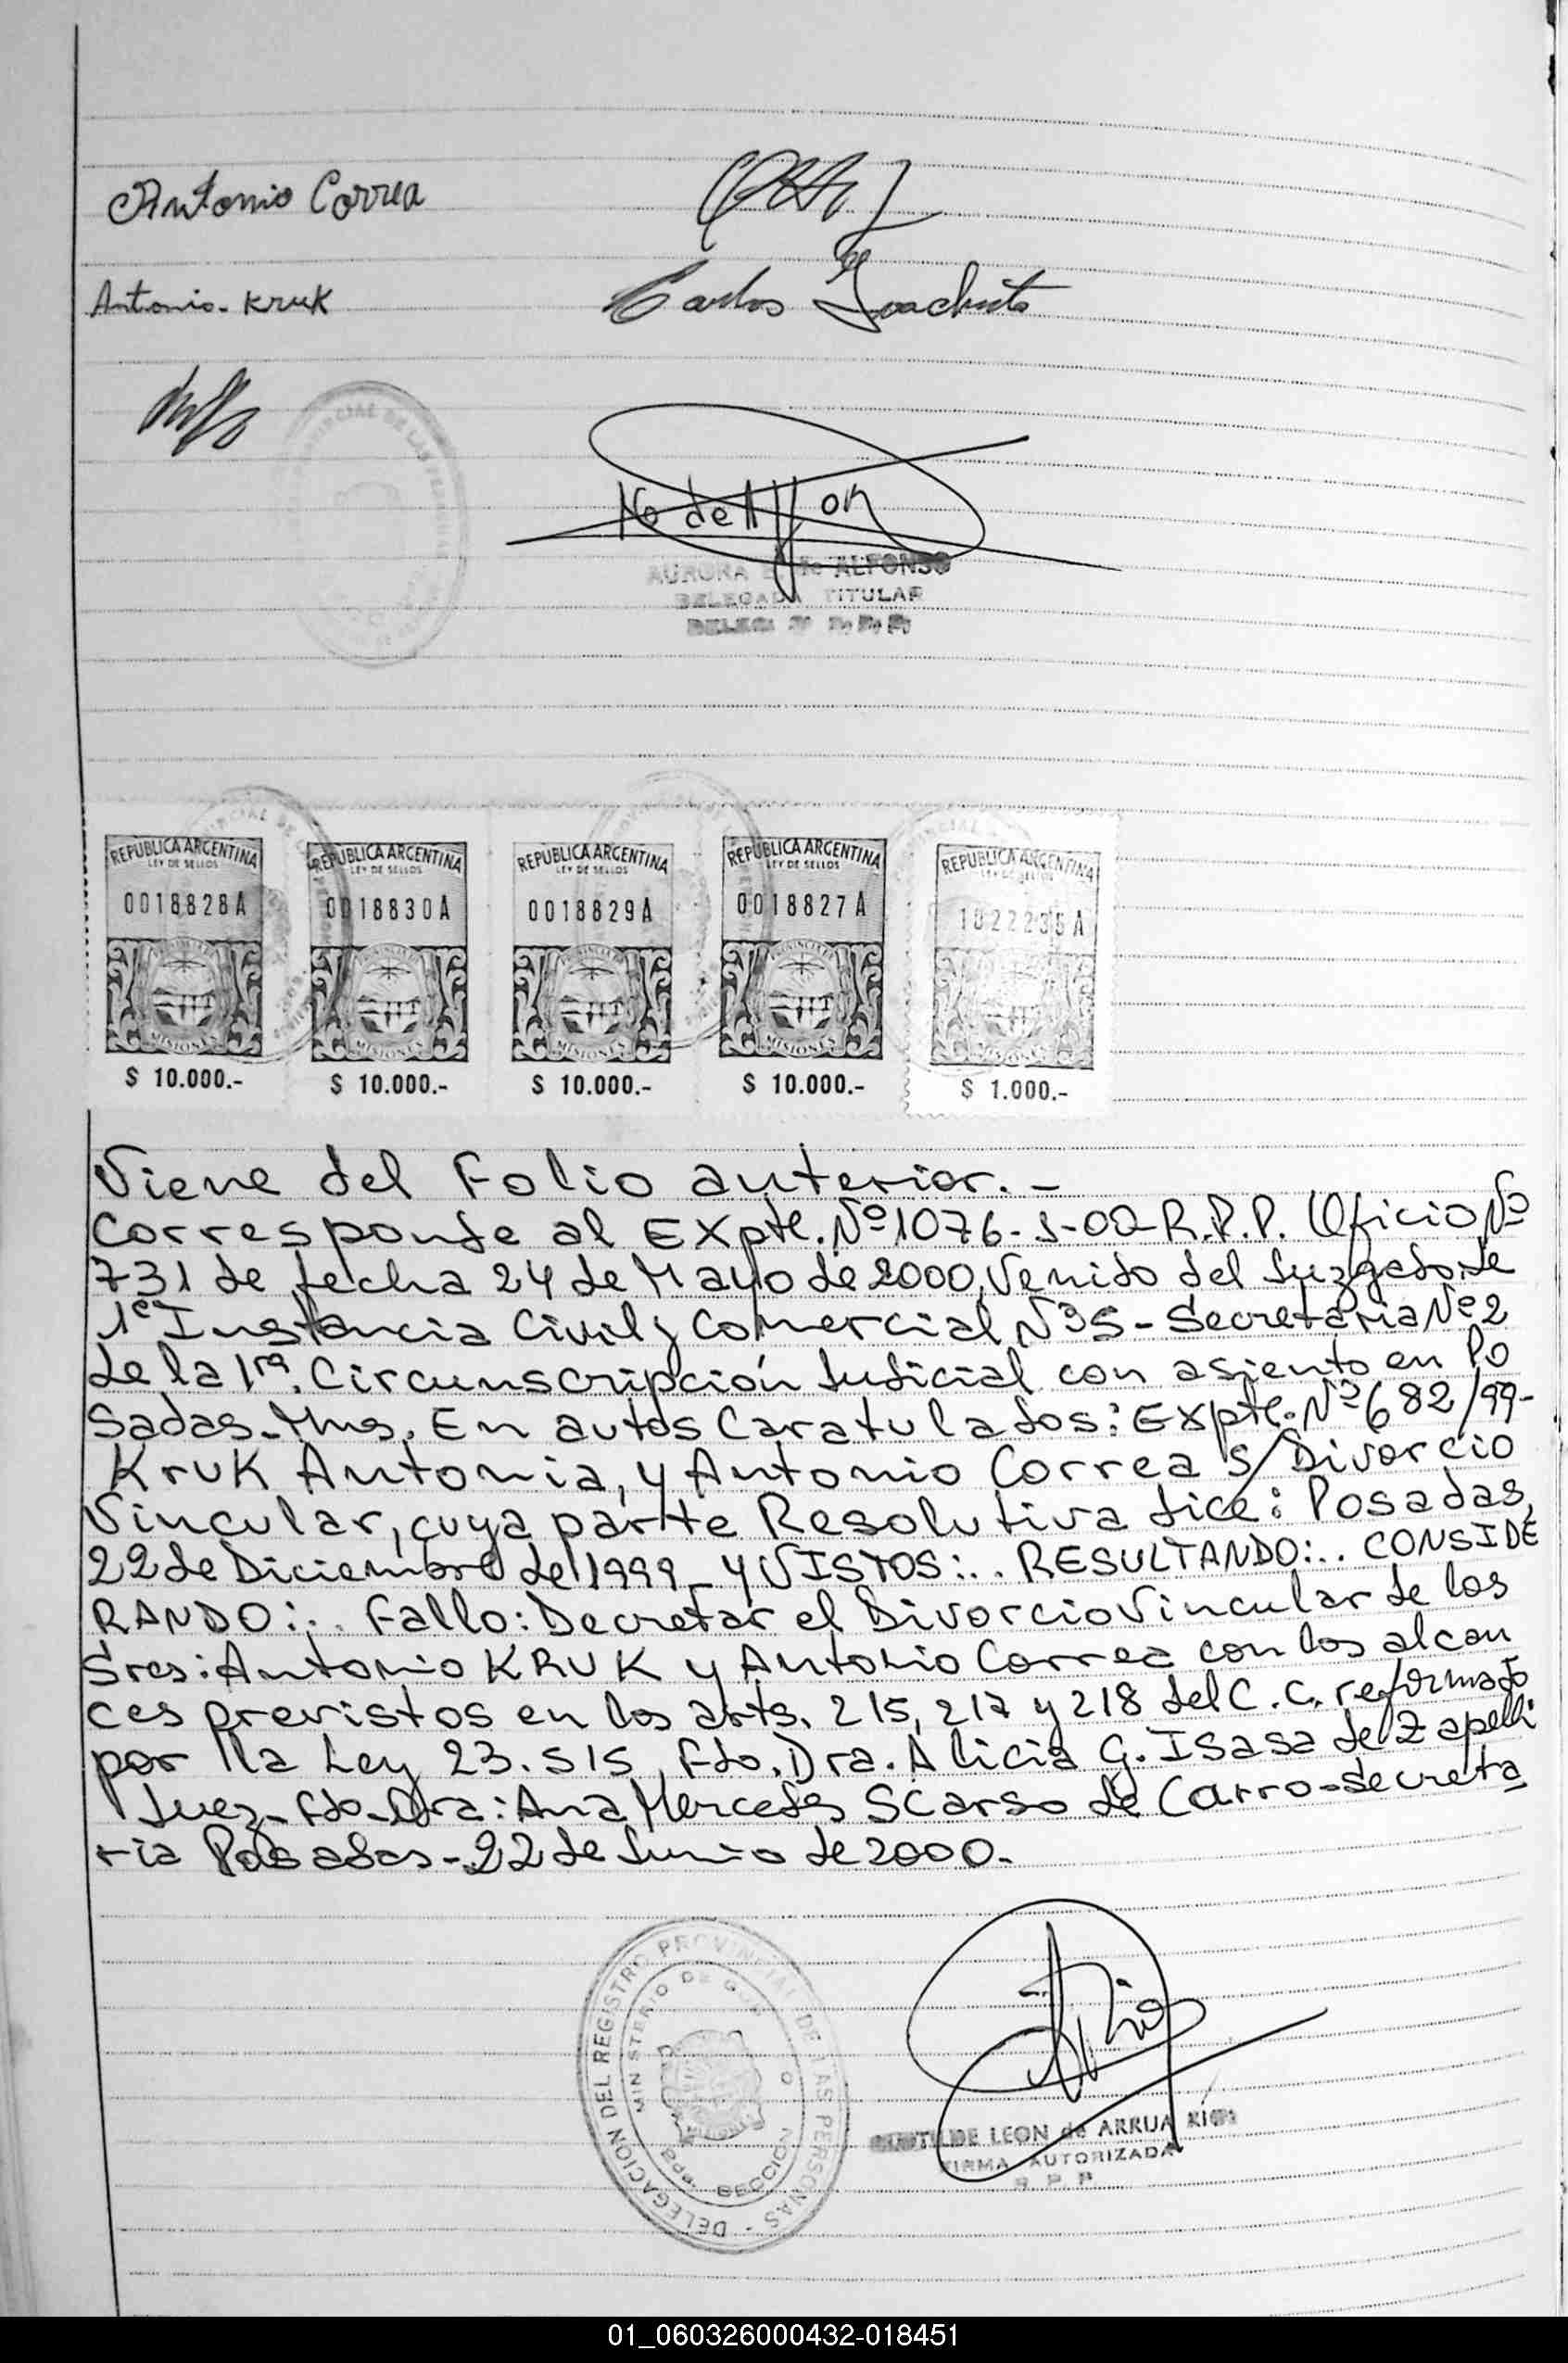 Antonio Correa
Antonio-Kruk
Carlos
AURORA de ALFONSO
DELEGADA TITULAR
REPUBLICA ARGENTINA
LEY DE SELLOS
0018828A
MISIONES
$ 10.000.-
REPUBLICA ARGENTINA
LEY DE SELLOS
0018830A
MISIONES
$ 10.000.-
REPUBLICA ARGENTINA
LEY DE SELLOS
0018829A
MISIONES
$ 10.000.-
REPUBLICA ARGENTINA
LEY DE SELLOS
0018827A
MISIONES
$ 10.000.-
REPUBLICA ARGENTINA
LEY DE SELLOS
1022235A
MISIONES
$ 1.000.-
Viene del Folio anterior.-
Corresponde al EXpte.Nº1076-J-00-R.P.P. Oficio Nº
731 de fecha 24 de Mayo de 2000, Venido del Juzgado de
1ª Instancia Civil y Comercial Nº5-Secretaria Nº2
de la 1ra. Circunscripción Judicial con asiento en Po
sadas-Mns. En autos Caratulados: Expte. Nº 682/99-
Kruk Antonia, y Antonio Correa s/Divorcio
Vincular, cuya parte Resolutiva dice: Posadas,
22 de Diciembre de 1999- Y VISTOS:.. RESULTANDO:.. CONSIDE
RANDO:.. Fallo: Decretar el Divorcio Vincular de los
Sres: Antonio KRUK y Antonio Correa con los alcan
ces previstos en los arts. 215, 217 y 218 del C.C. reformado
por la Ley 23.515, Fdo. Dra. Alicia G. Isasa de Zapelli
Juez- Fdo. Dra: Ana Mercedes SCarso de Carro-Secreta
ria Posadas-22 de Junio de 2000.
DELEGACION DEL REGISTRO PROVINCIAL DE LAS PERSONAS
MINISTERIO DE GOB
SECCION
CLOTILDE LEON de ARRUA
FIRMA AUTORIZADA
R.P.P.
01_060326000432-018451